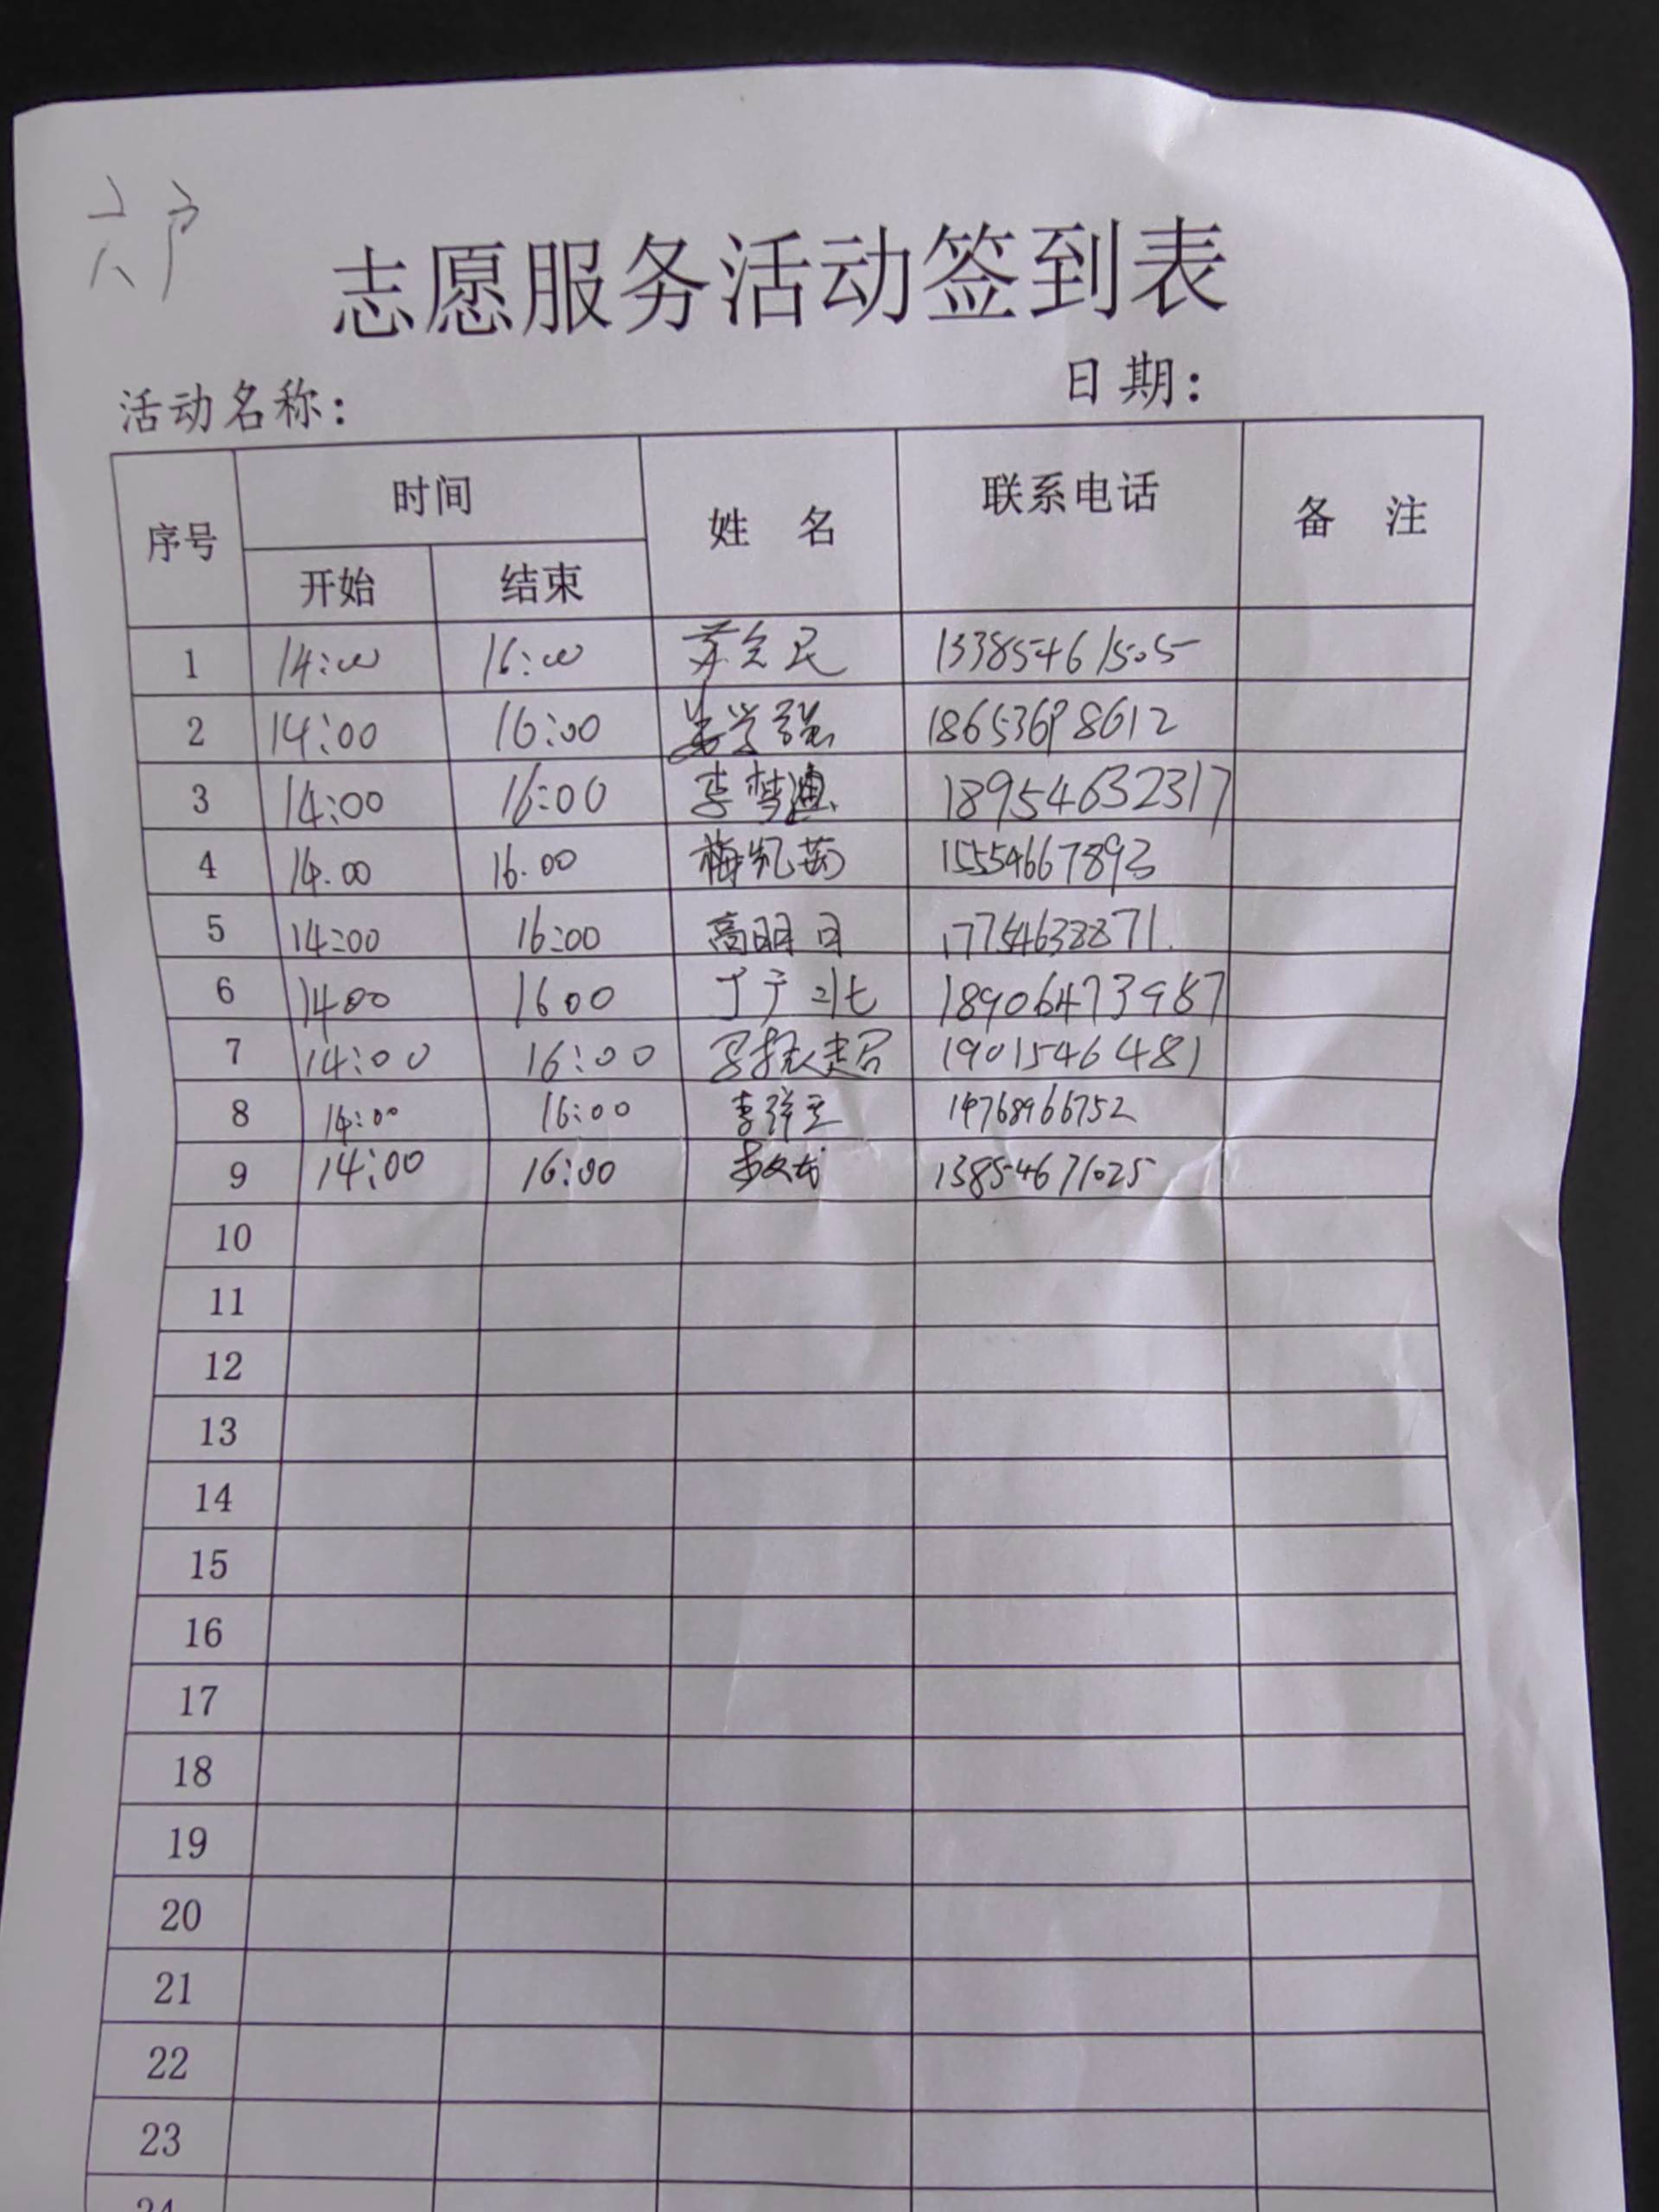 六户
志愿服务活动签到表
活动名称: 日期:
序号 时间 姓 名 联系电话 备 注
开始 结束
1 14:00 16:00 民 13385461505
2 14:00 16:00 18653698612
3 14:00 16:00 李梦迪 18954632317
4 14.00 16.00 梅凯茜 15554667893
5 14:00 16:00 高明日 17754638871
6 1400 1600 于北 18906473987
7 14:00 16:00 1901546481
8 14:00 16:00 李 14768966752
9 14:00 16:00 13854671025
10
11
12
13
14
15
16
17
18
19
20
21
22
23
24